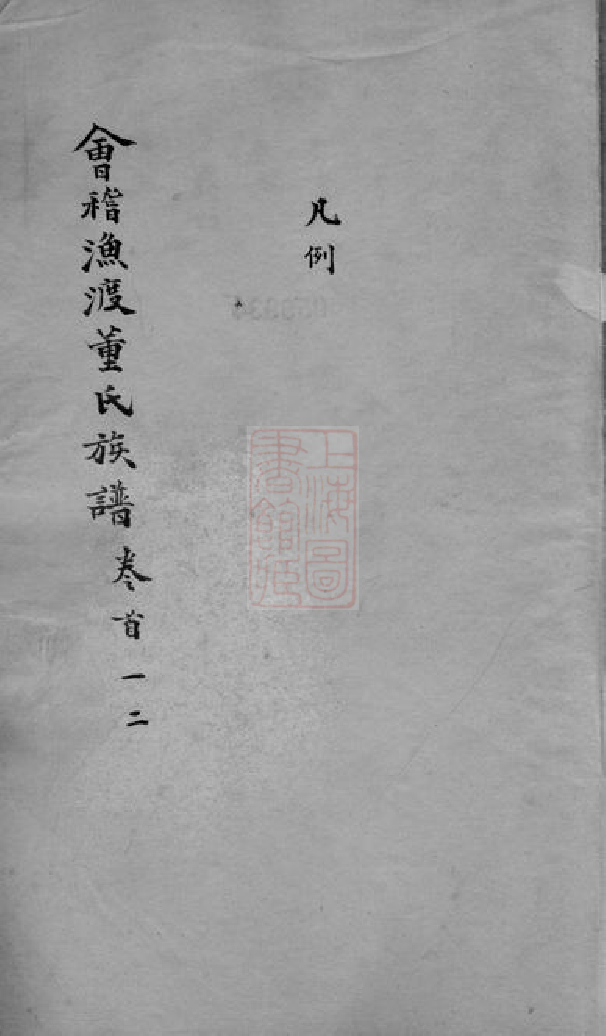 凡例
會稽漁渡董氏族譜 卷首一二
上海圖
書館藏